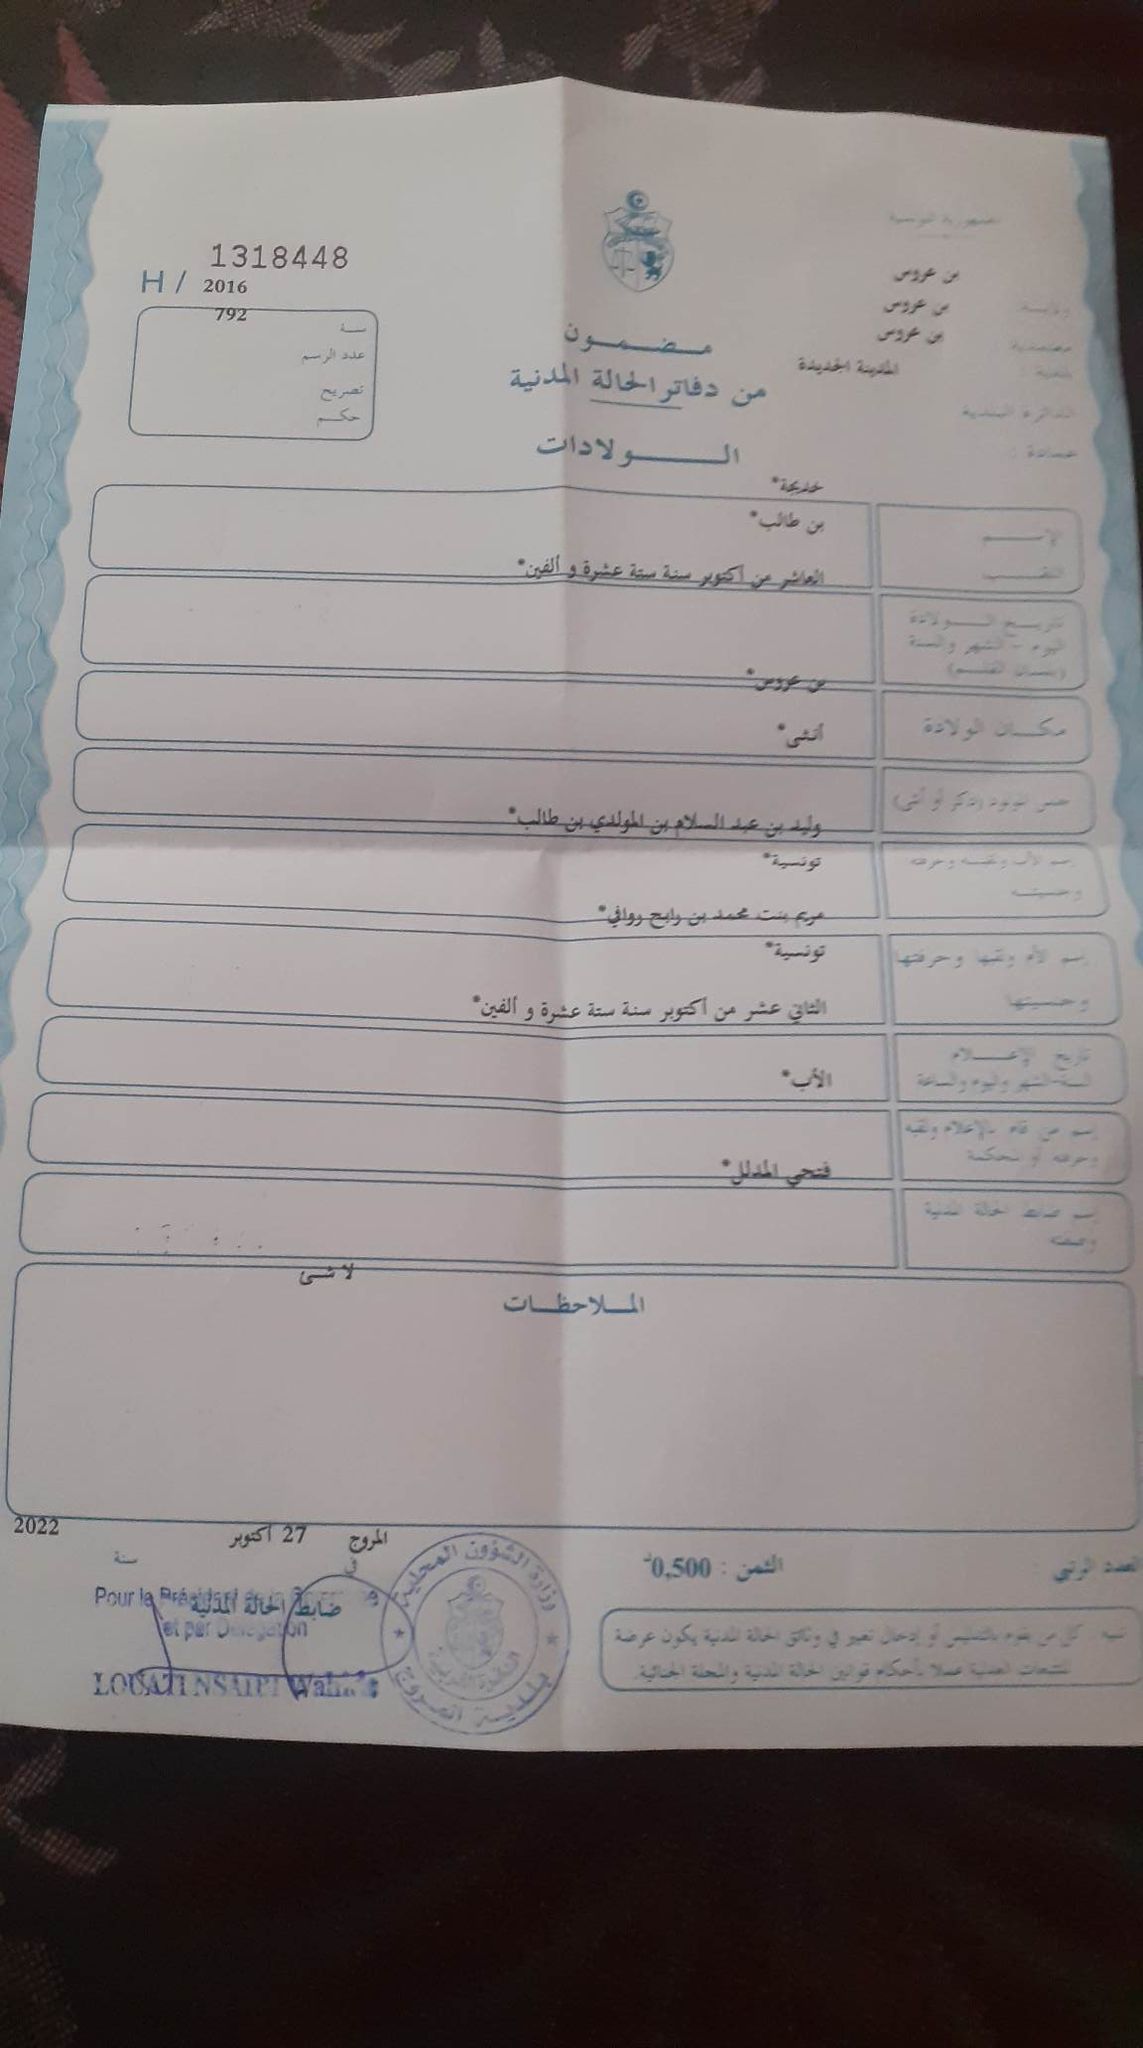 الجمهورية التونسية
بن عروس
ولاية : بن عروس
معتمدية : بن عروس
بلدية : المدينة الجديدة
الدائرة البلدية
عمادة :
1318448
H / 2016
792
سنة
عدد الرسم
تصريح
حكم
مضمون
من دفاتر الحالة المدنية
الولادات
خديجة*
الإسم
بن طالب*
اللقب
العاشر من أكتوبر سنة ستة عشرة و ألفين*
تاريخ الولادة
اليوم - الشهر والسنة
(بلسان القلم)
بن عروس*
مكان الولادة
أنثى*
جنس المولود (ذكر أو أنثى)
وليد بن عبد السلام بن المولدي بن طالب*
إسم الأب ولقبه وحرفته
تونسية*
وجنسيته
مريم بنت محمد بن رابح روافي*
إسم الأم ولقبها وحرفتها
تونسية*
وجنسيتها
الثاني عشر من أكتوبر سنة ستة عشرة و ألفين*
تاريخ الإعلام
السنة-الشهر واليوم والساعة
الأب*
إسم من قام بالإعلام ولقبه
وحرفته أو المحكمة
فتحي المدلل*
إسم ضابط الحالة المدنية
وصفته
لا شئ
الملاحظات
المروج 27 أكتوبر 2022
في سنة
ضابط الحالة المدنية
Pour le Président de la
et par Délégation
LOUATI NSAIBI
وزارة الشؤون المحلية
بلدية المروج
العدد الرتبي :
الثمن : 0,500د
تنبيه : كل من يقوم بالتدليس أو إدخال تغيير في وثائق الحالة المدنية يكون عرضة
للتتبعات العدلية عملا بأحكام قوانين الحالة المدنية والمجلة الجنائية.